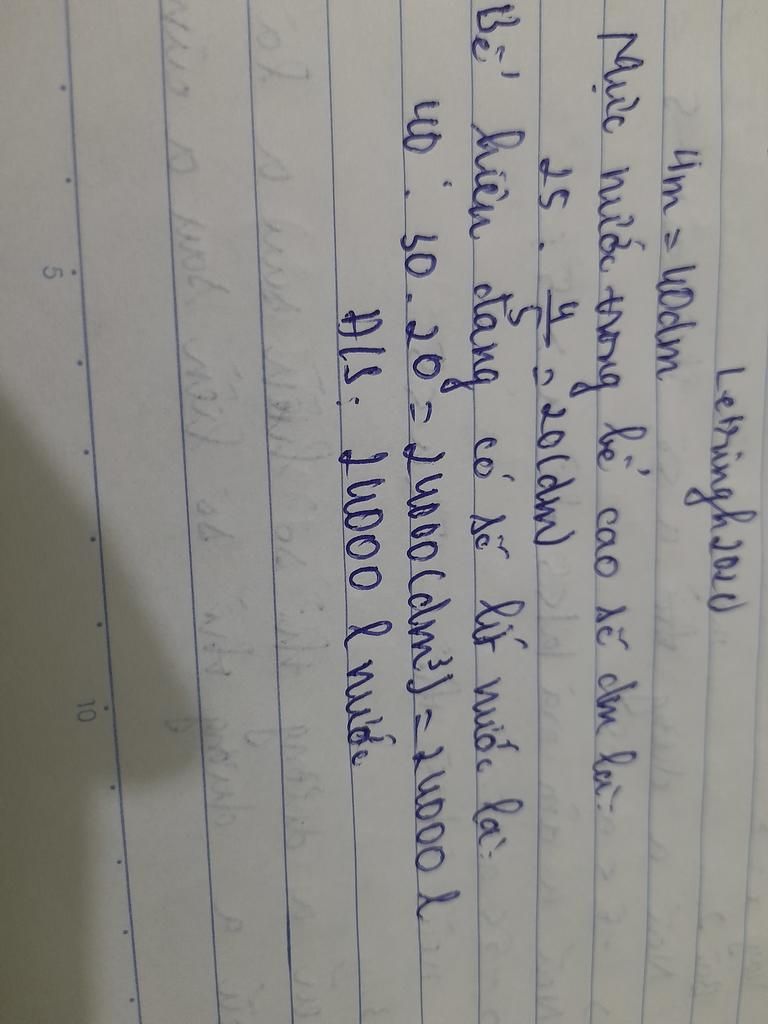 Letringh2010
4m = 40dm
Mực nước trong bể cao số dm là:
25 . 4/5 = 20(dm)
Bể hiện đang có số lít nước là:
40 . 30 . 20 = 24000(dm³) = 24000 l
Đ/S: 24000 l nước
5
10